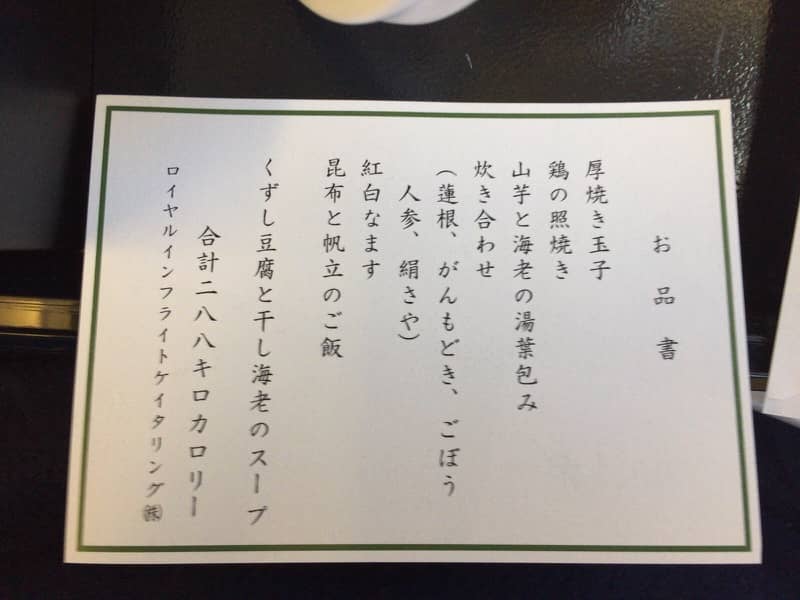 お品書
厚焼き玉子
鶏の照焼き
山芋と海老の湯葉包み
炊き合わせ
(蓮根、がんもどき、ごぼう
人参、絹さや)
紅白なます
昆布と帆立のご飯
くずし豆腐と干し海老のスープ
合計二八八キロカロリー
ロイヤルインフライトケイタリング㈱